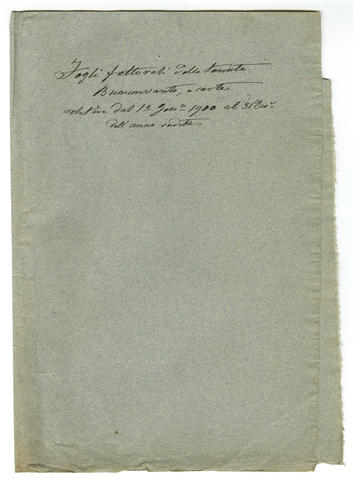 Fogli fattorali della Tenuta
Buonconvento, e carte
relative dal 1º Genº 1900 al 31 Decº
dell'anno sudettо